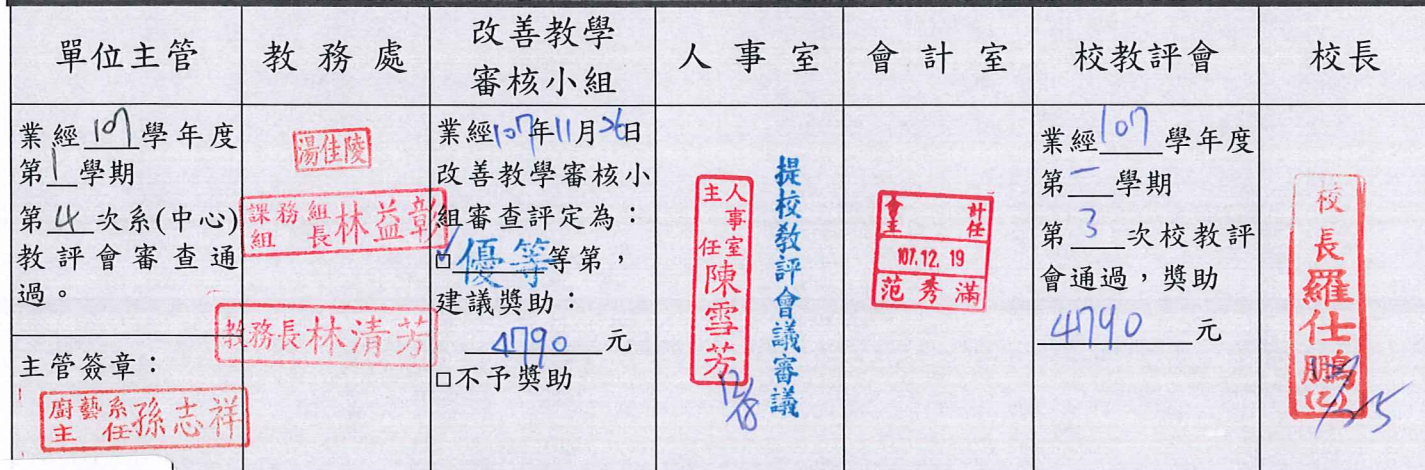 單位主管
教務處
改善教學
審核小組
人事室
會計室
校教評會
校長
業經107學年度
第1學期
第4次系(中心)
教評會審查通
過。
主管簽章：
廚藝系
主任
孫志祥
湯佳陵
課務組
組長
林益彰
教務長林清芳
業經107年11月26日
改善教學審核小
組審查評定為：
☑優等等第，
建議獎助：
4790元
□不予獎助
人事室
主任
陳雪芳
12/18
提校教評會議審議
會計
主任
107.12.19
范秀滿
業經107學年度
第一學期
第3次校教評
會通過，獎助
4790元
校長羅仕鵬